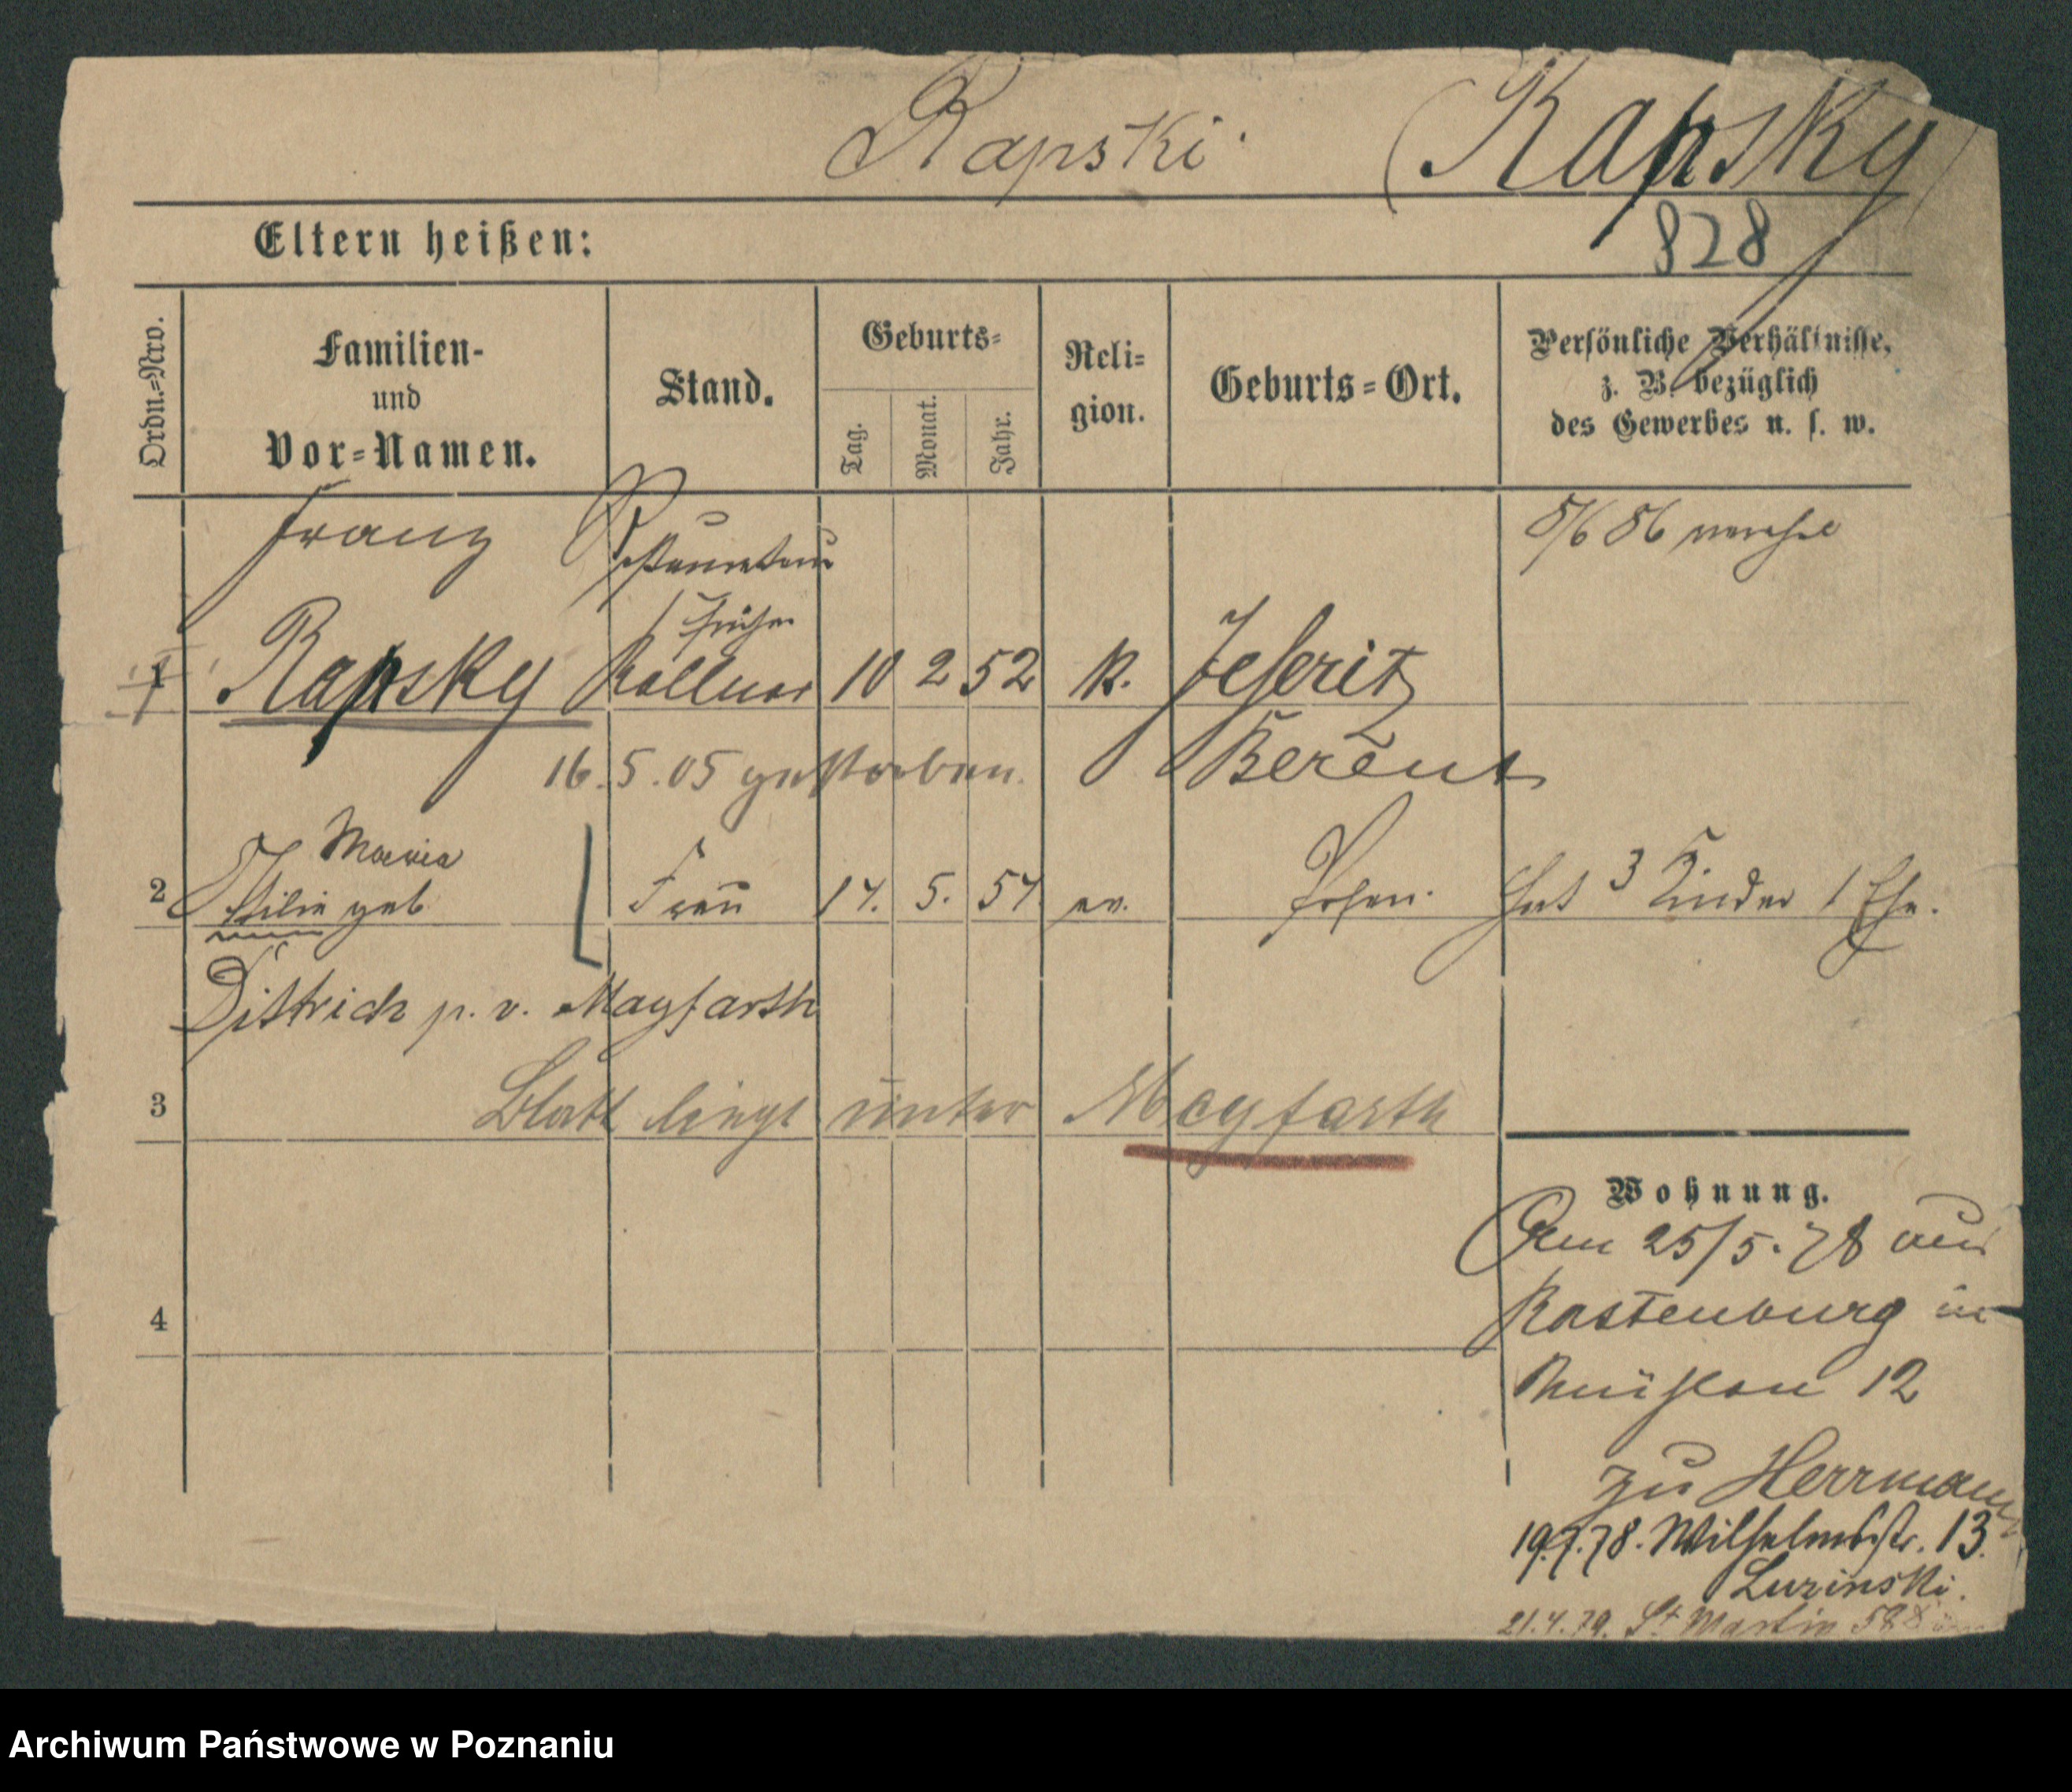 Rapski. (Rapsky)
Eltern heißen:
828
Ordn.=Nro.
Familien-
und
Vor=Namen.
Stand.
Geburts=
Tag.
Monat.
Jahr.
Reli=
gion.
Geburts=Ort.
Persönliche Verhältnisse,
z. B. bezüglich
des Gewerbes u. s. w.
Franz Restaurateur
früher
1 Rapsky Kellner 10 2 52 k. Jeseritz
16.5.05 gestorben. Berent
Maria
2 geb Frau 14. 5. 54 ev. Posen. hat 3 Kinder 1 Ehe.
Dittrich p. v. Mayfarth
3 Blatt liegt unter Mayfarth
Wohnung.
Am 25/5. 78 aus
Rastenburg in
4
12
zu Herrmann
19.7.78. Wilhelmsstr. 13.
Luzinski.
21.4.79. St Martin 58
Archiwum Państwowe w Poznaniu